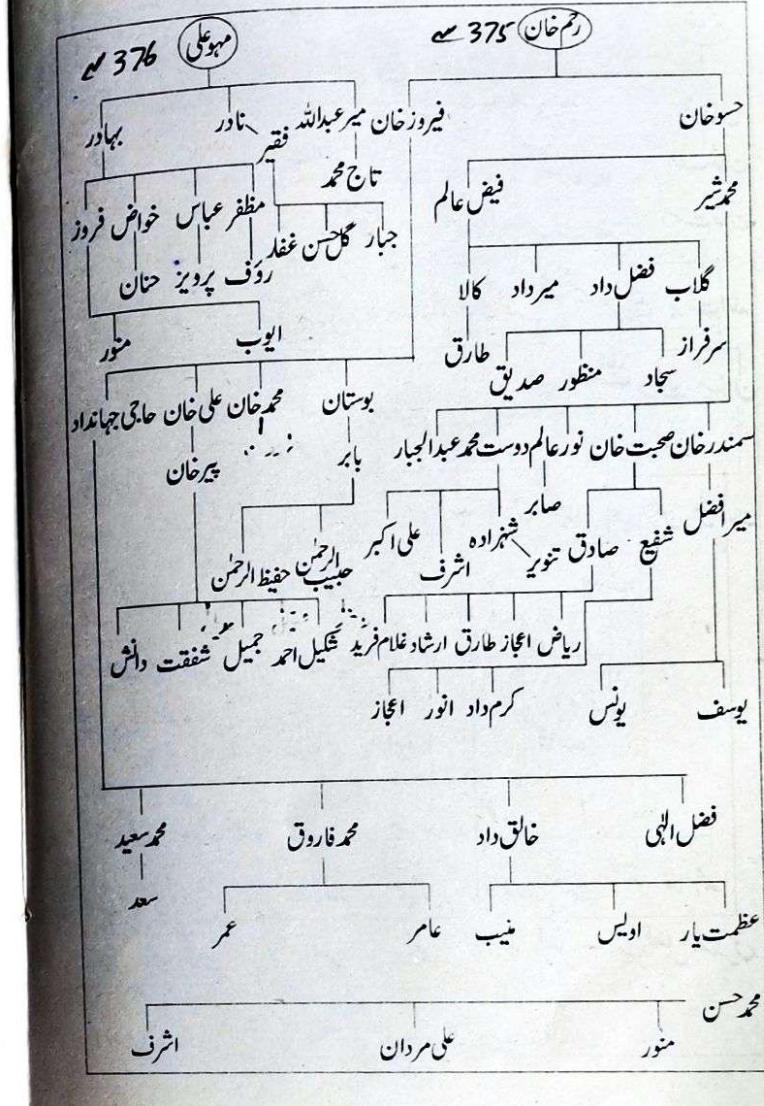 رحم خان 375 سے مہو علی 376 سے
حسو خان فیروز خان میر عبداللہ فقیر نادر بہادر
محمد شیر فیض عالم تاج محمد
جبار گل حسن غفار مظفر عباس خواض فروز
گلاب فضل داد میر داد کالا رؤف پرویز حنان
سرفراز سجاد منظور صدیق طارق ایوب منور
بوستان محمد خان علی خان حاجی جہانداد
سمندر خان صحبت خان نور عالم دوست محمد عبدالجبار بابر پیر خان
میر افضل شفیع صادق صابر تنویر شہزادہ اشرف علی اکبر حبیب الرحمٰن حفیظ الرحمٰن
ریاض اعجاز طارق ارشاد غلام فرید شکیل احمد جمیل شفقت دانش
یوسف یونس کرم داد انور اعجاز
فضل الٰہی خالق داد محمد فاروق محمد سعید
سعد
عظمت یار اویس منیب عامر عمر
محمد حسن
منور علی مردان اشرف